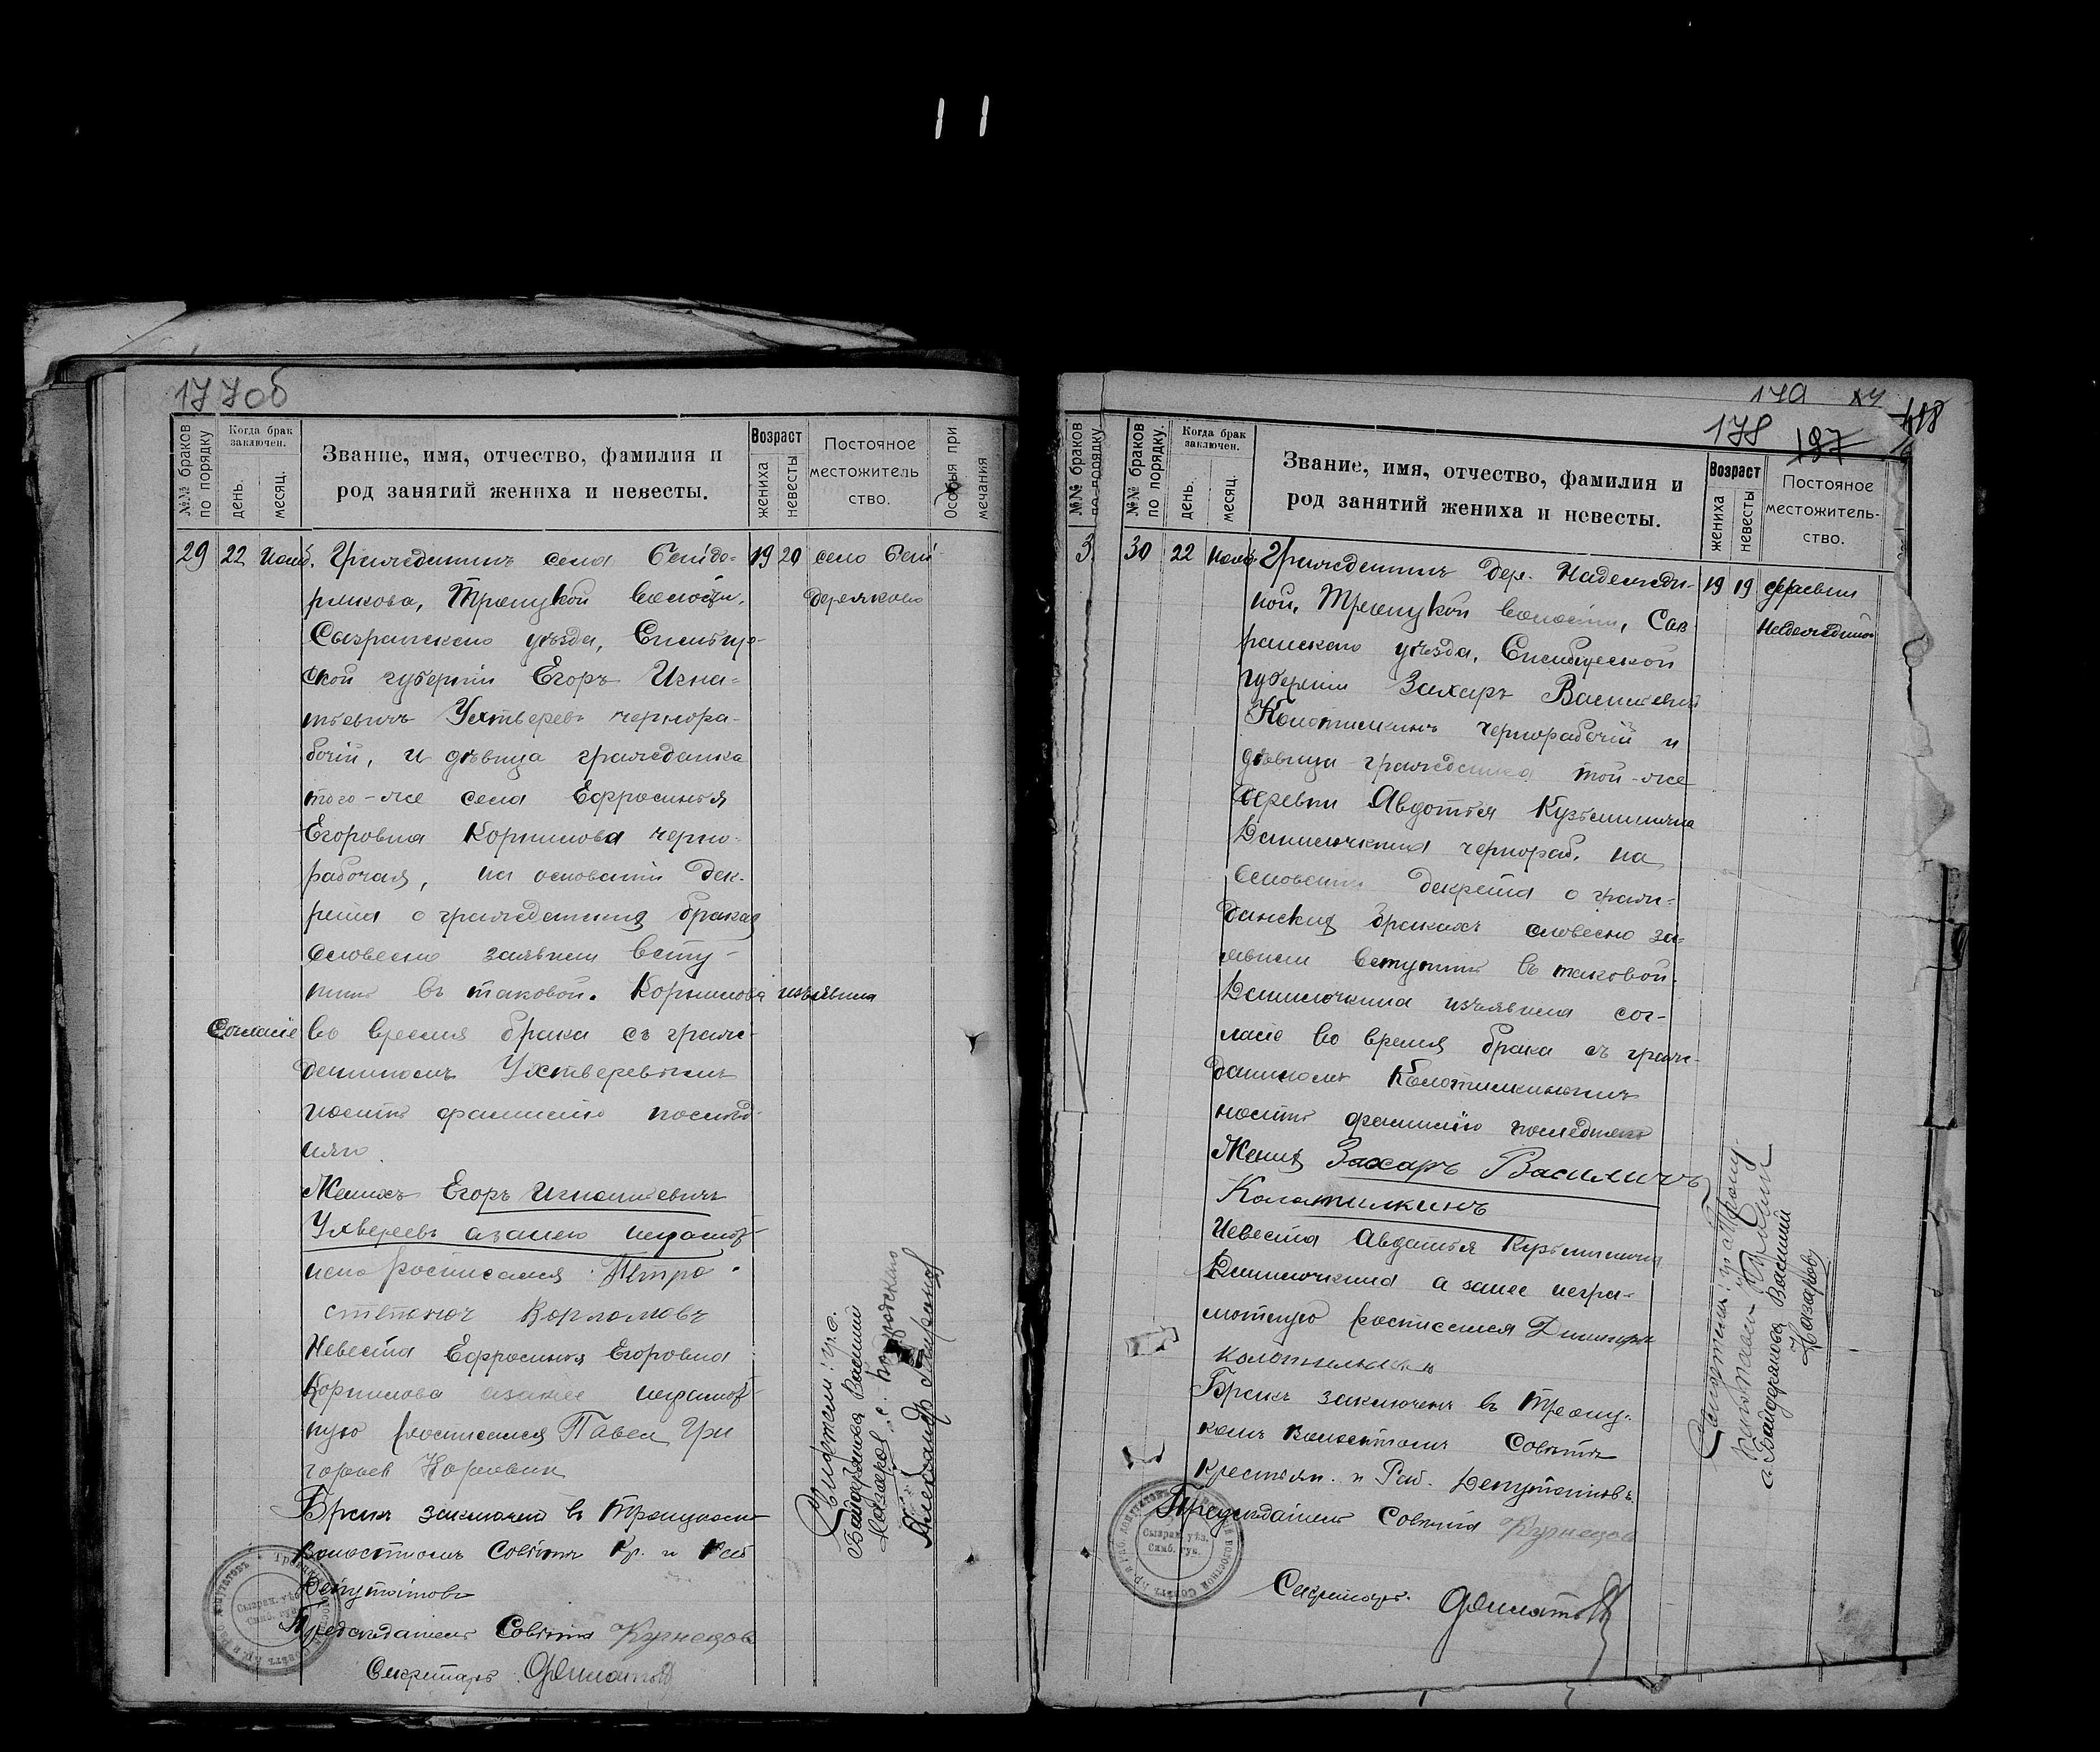 177 об
№№ браков по порядку
Когда брак заключен.
день.
месяц.
Звание, имя, отчество, фамилия и
род занятий жениха и невесты.
Возраст
жениха
невесты
Постояное
местожитель
ство.
Особыя при
мечания
29 22 Нояб. Гражданинъ села 19 20 село
Волости,
Сызранскаго уѣзда, Симбир-
ской губерніи Егоръ Игна-
тьевичъ Ухтверевъ чернора-
бочій, и дѣвица гражданка
того-же села Ефросинья
Егоровна Корнилова черно-
рабочая, на основаніи Дек-
рета о гражданских браках
словесно заявили всту-
пить въ таковой. Корнилова изъявила
Согласіе во время брака съ граж-
даниномъ Ухтверевымъ
носить фамилію послѣд-
няго
Женихъ Егоръ Игнатьевичъ
Ухверевъ азанего неграмот-
наго росписался Петръ
Невеста Ефросинья Егоровна
Корнилова азанее неграмот-
ную росписался Павел Гри
горьев
Бракъ заключенъ въ
Волостномъ Совѣтѣ Кр. и Раб
Депутатовъ
Председатель Совѣта Кузнецов
Секретарь
Свидѣтели: гр. с.
Байдарякова Василий
Назаров
Александр
179
178 187
№№ браков по порядку
№№ браков по порядку.
Когда брак заключен.
день.
месяц.
Звание, имя, отчество, фамилия и
род занятий жениха и невесты.
Возраст
жениха
невесты
Постояное
местожитель-
ство.
30 22 Нояб. Гражданинъ дер. Надеждин- 19 19 деревни
ной, Волости, Сыз- Надеждиной
ранскаго уѣзда, Симбирской
губерніи Захаръ Васильевичъ
Колотилкинъ чернорабочій и
дѣвица гражданка той-же
деревни Авдотья Кузьминична
чернораб. на
основаніи декрета о граж-
данских бракахъ словесно за-
явили вступить въ таковой.
изъявила сог-
ласіе во время брака съ граж-
даниномъ Колотилкинымъ
носить фамилію последняго
Жених Захаръ Василичъ
Колатилкинъ
Невеста Авдотья Кузьминична
а занее негра-
мотную росписался Дмитрий
Бракъ заключенъ въ
комъ Волостномъ Совѣтѣ
крестьян. и Раб. Депутатовъ.
Председатель Совѣта Кузнецов
Секретарь.
Сызран. уѣз.
Симб. губ.
с. Байдарякова Василий
Назаров